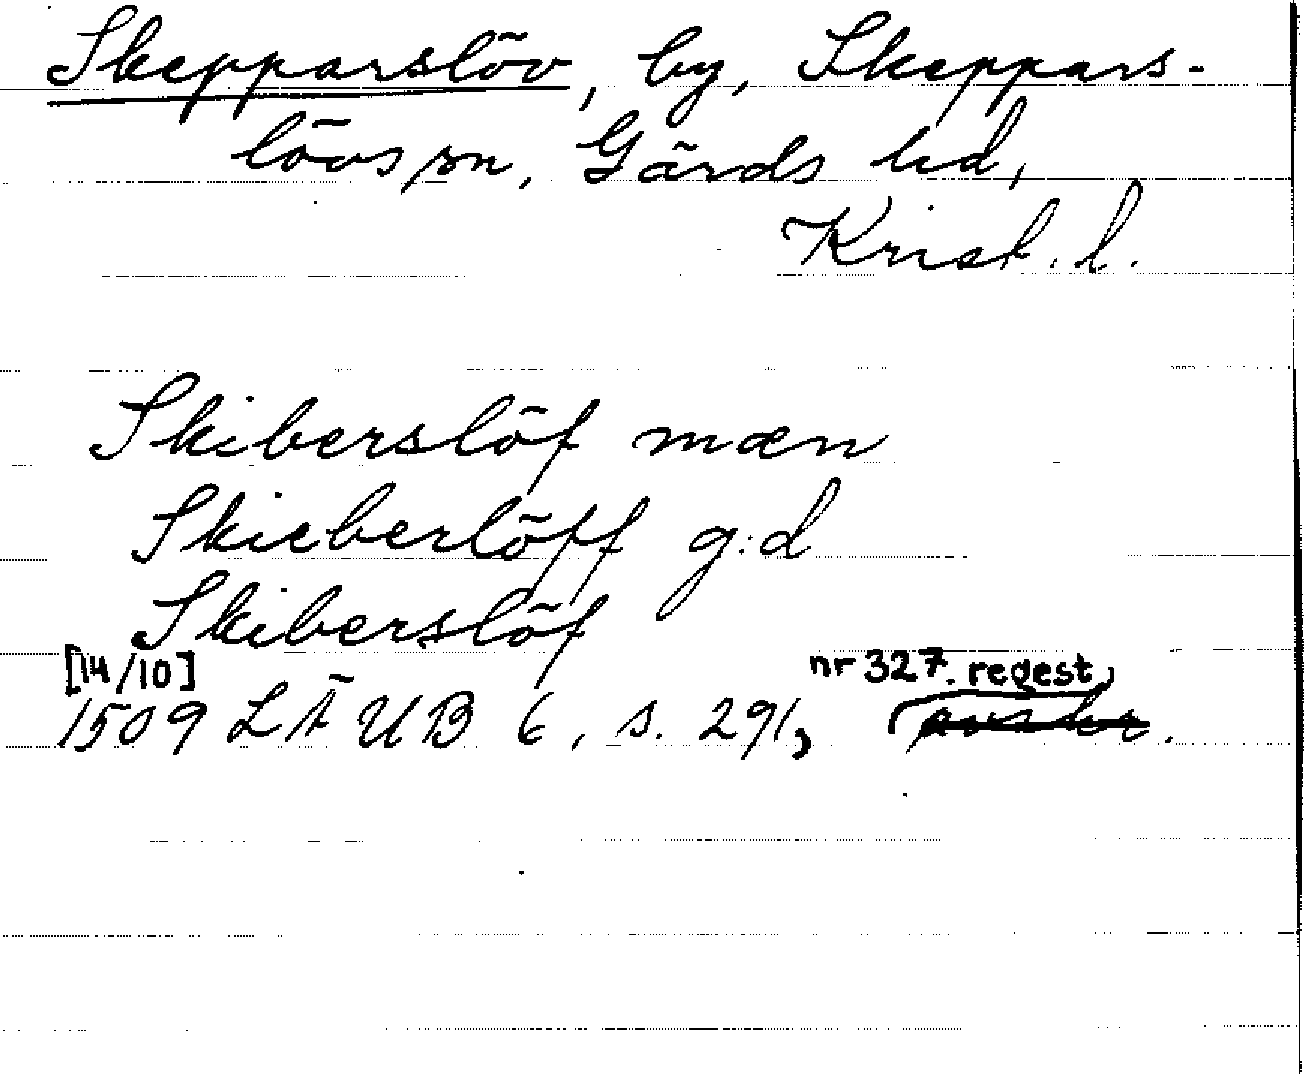 Skepparslöv, by, Skeppars-
lövs sn, Gärds hd,
Krist. l.
Skiberslöf mæn
Skieberlöff g:d
Skiberslöf
[14/10]
nr 327. regest
1509 LÄUB 6, s. 291,